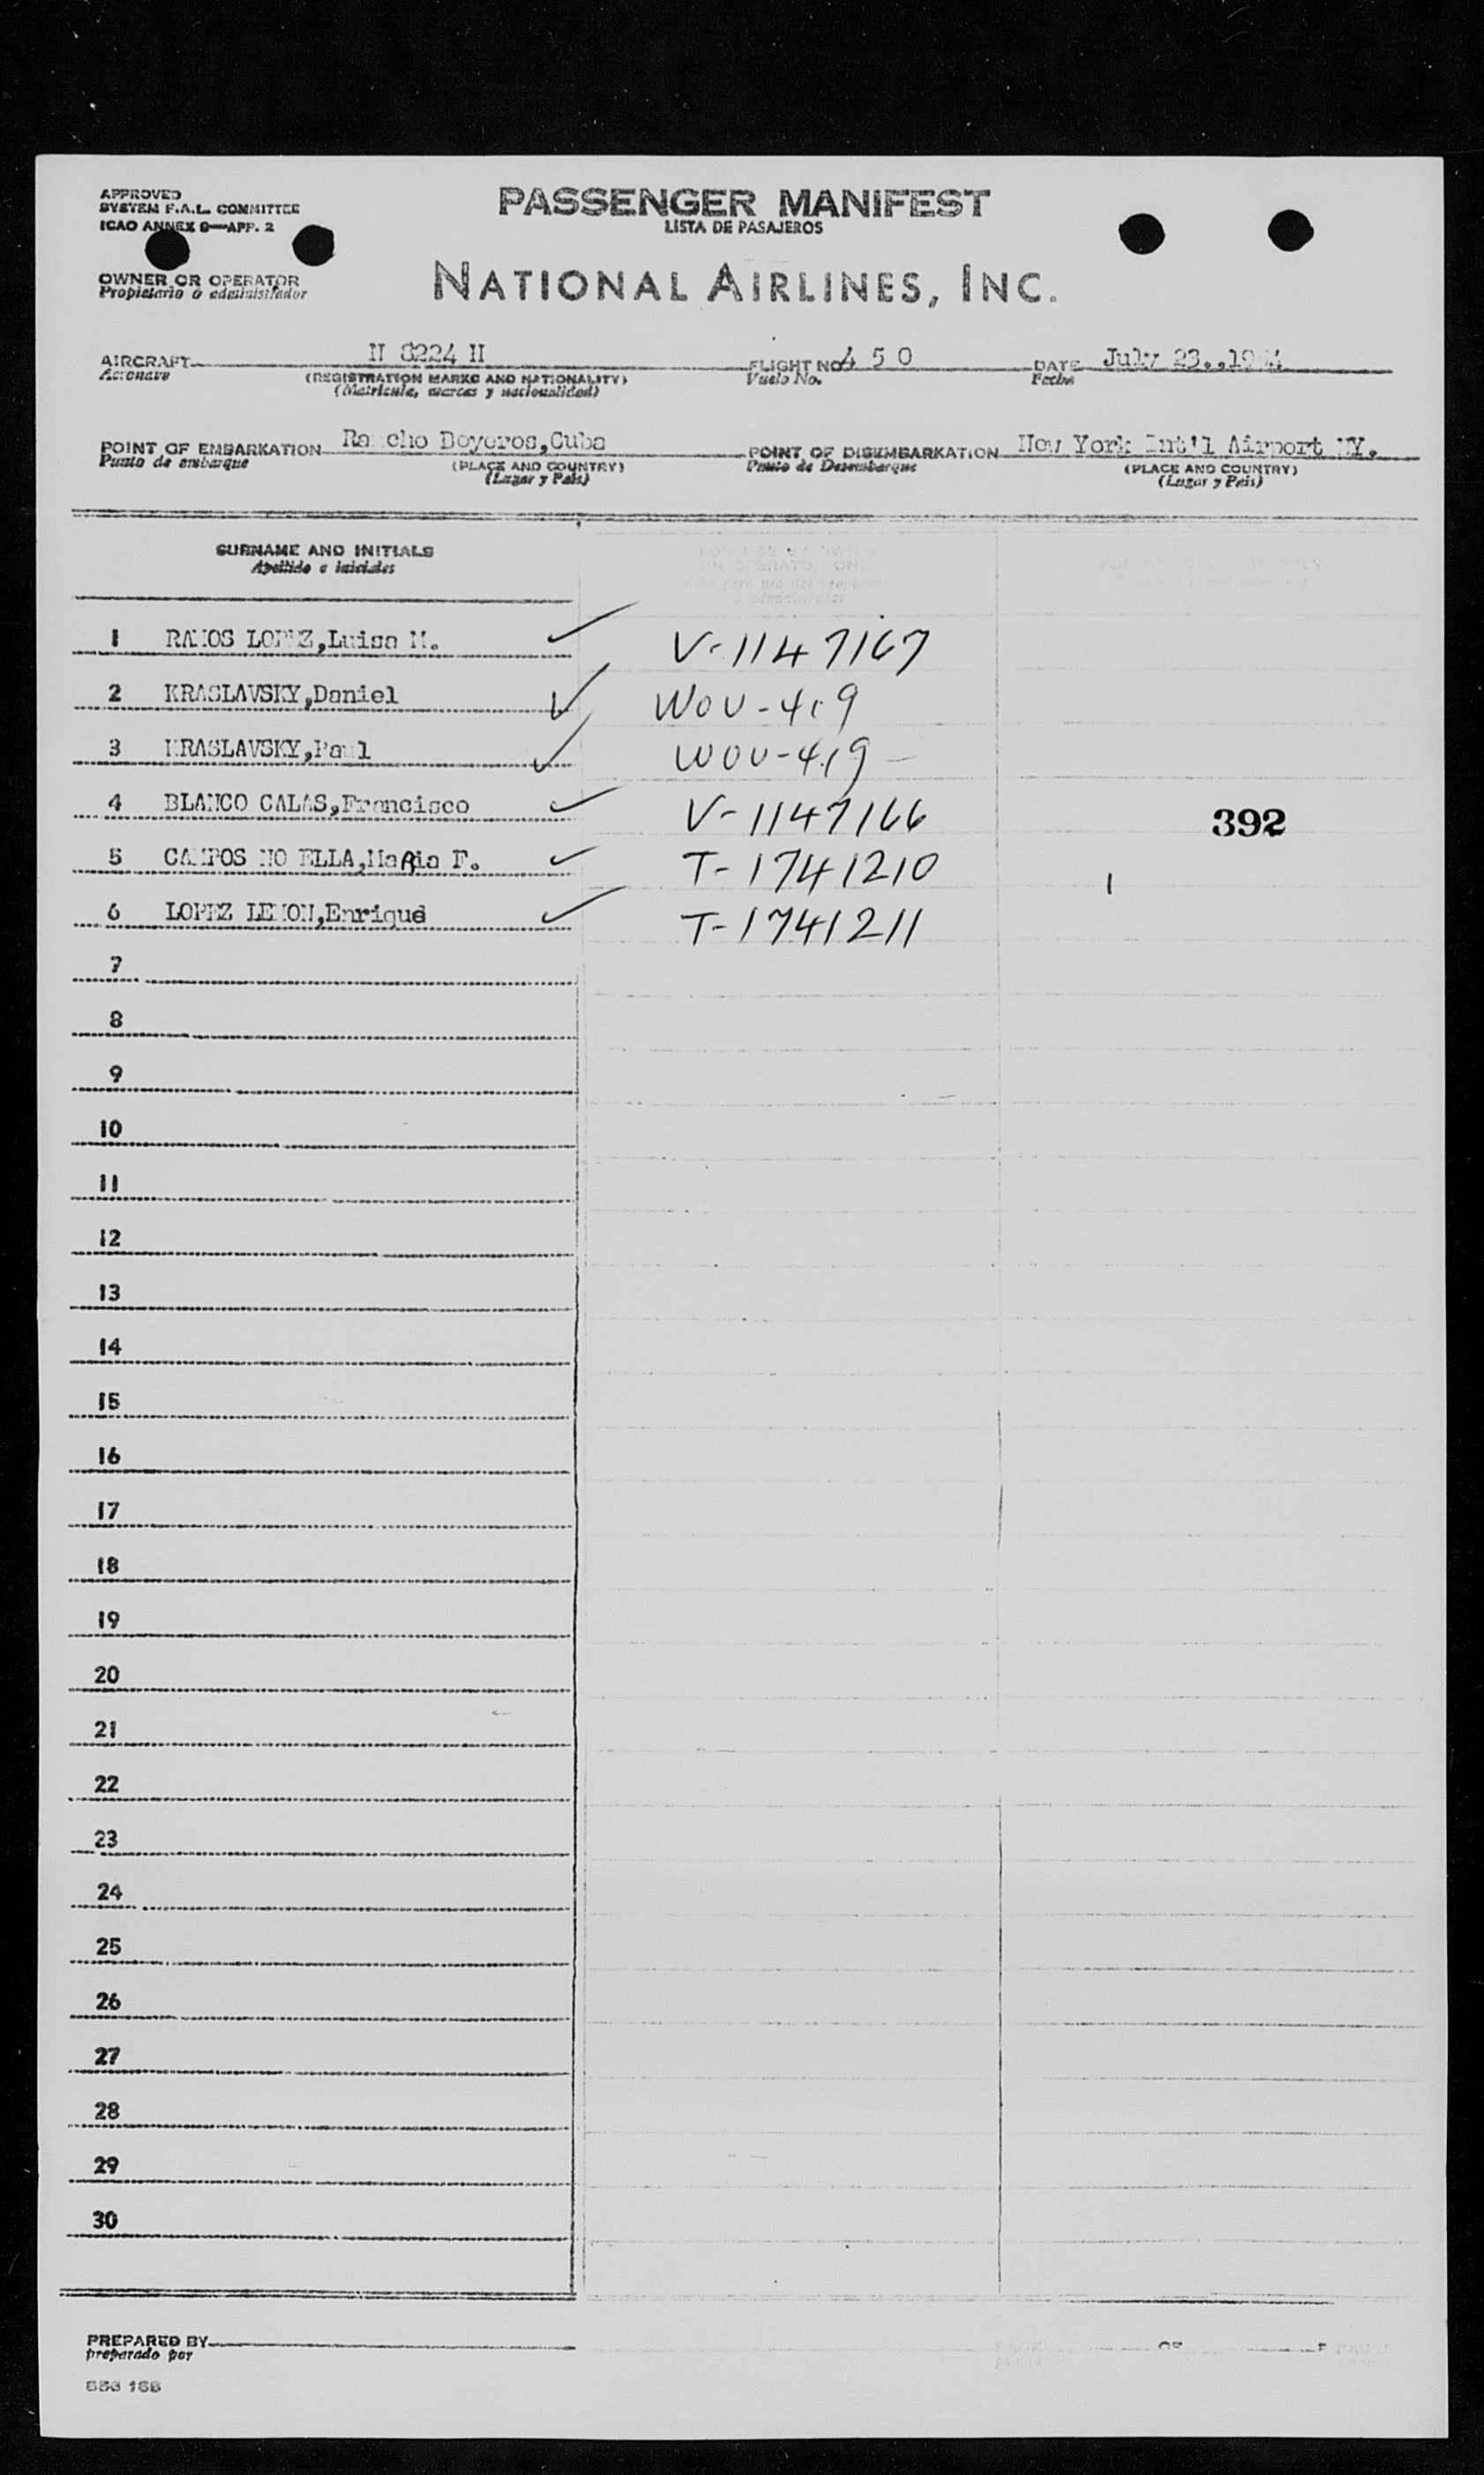 APPROVED
SYSTEM F.A.L. COMMITTEE
ICAO ANNEX 9—APP. 2
PASSENGER MANIFEST
LISTA DE PASAJEROS
OWNER OR OPERATOR
Propietario ó administrador
NATIONAL AIRLINES, INC.
AIRCRAFT N 8224 H FLIGHT NO 4 5 0 DATE July 23.,
Aeronave (REGISTRATION MARKS AND NATIONALITY) Vuelo No. Fecha
(Matrícula, marcas y nacionalidad)
POINT OF EMBARKATION Rancho Boyeros,Cuba POINT OF DISEMBARKATION New York Int'l Airport NY.
Punto de embarque (PLACE AND COUNTRY) Punto de Desembarque (PLACE AND COUNTRY)
(Lugar y País) (Lugar y País)
SURNAME AND INITIALS
Apellido e iniciales
1 RAMOS LOPEZ,Luisa M. V-1147167
2 KRASLAVSKY,Daniel WOV-419
3 KRASLAVSKY,Paul WOV-419
4 BLANCO CALAS,Francisco V-1147166
392
5 CAMPOS ,MaRia F. T-1741210
6 LOPEZ LEMON,Enrique T-1741211
7
8
9
10
11
12
13
14
15
16
17
18
19
20
21
22
23
24
25
26
27
28
29
30
PREPARED BY OF
preparado por